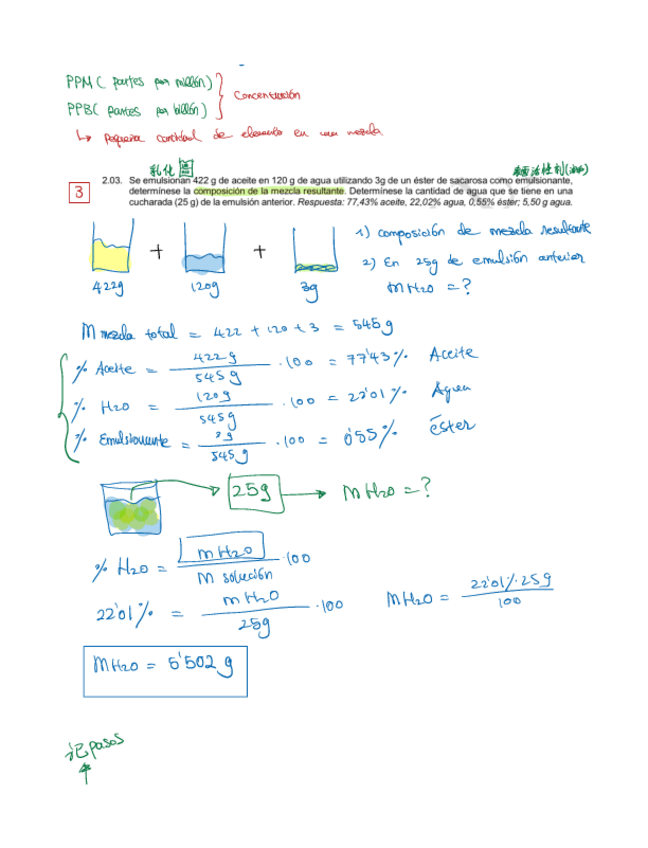 PPM ( partes por millón )
PPB ( partes por billón )
Concentración
↳ pequeña cantidad de elemento en una mezcla
乳化
3
2.03. Se emulsionan 422 g de aceite en 120 g de agua utilizando 3g de un éster de sacarosa como emulsionante,
determínese la composición de la mezcla resultante. Determínese la cantidad de agua que se tiene en una
cucharada (25 g) de la emulsión anterior. Respuesta: 77,43% aceite, 22,02% agua, 0,55% éster; 5,50 g agua.
422g + 120g + 3g
1) composición de mezcla resultante
2) En 25g de emulsión anterior
mH2O = ?
M mezcla total = 422 + 120 + 3 = 545g
% Aceite = 422g / 545g · 100 = 77'43% Aceite
% H2O = 120g / 545g · 100 = 22'01% Agua
% Emulsionante = 3g / 545g · 100 = 0'55% éster
25g → mH2O = ?
% H2O = mH2O / m solución · 100
22'01% = mH2O / 25g · 100
mH2O = 22'01% · 25g / 100
mH2O = 5'502 g
记 pasos